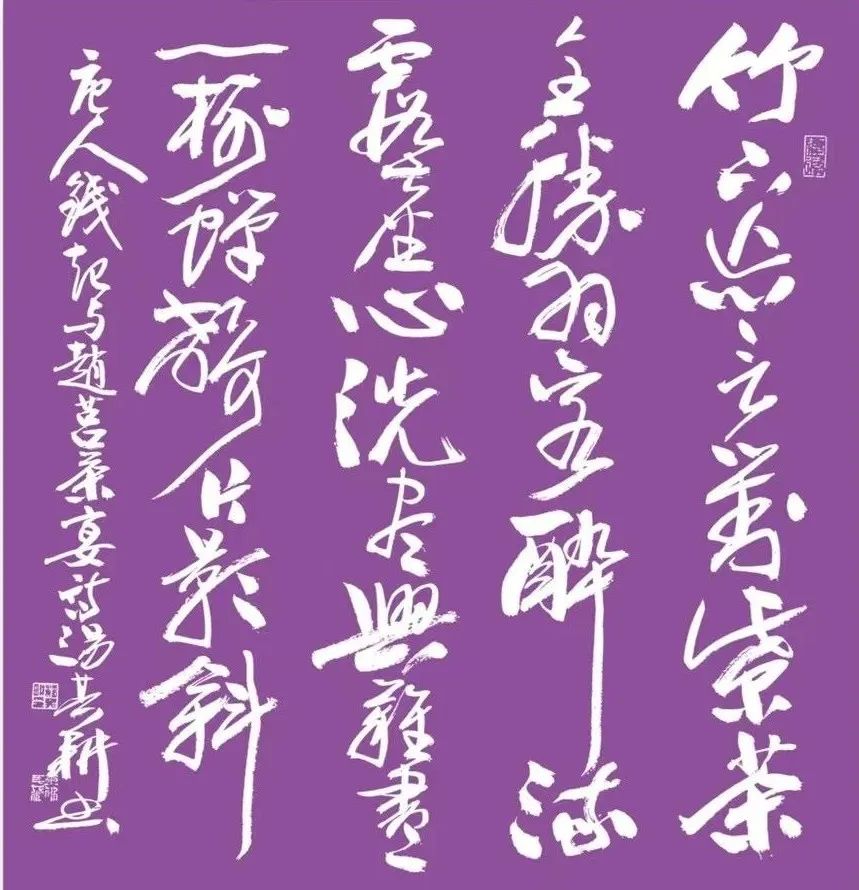 竹下忘言對紫茶
全勝羽客醉流
霞塵心洗尽興難盡
一樹蟬聲片影斜
唐人錢起与趙莒茶宴诗湯其耕书